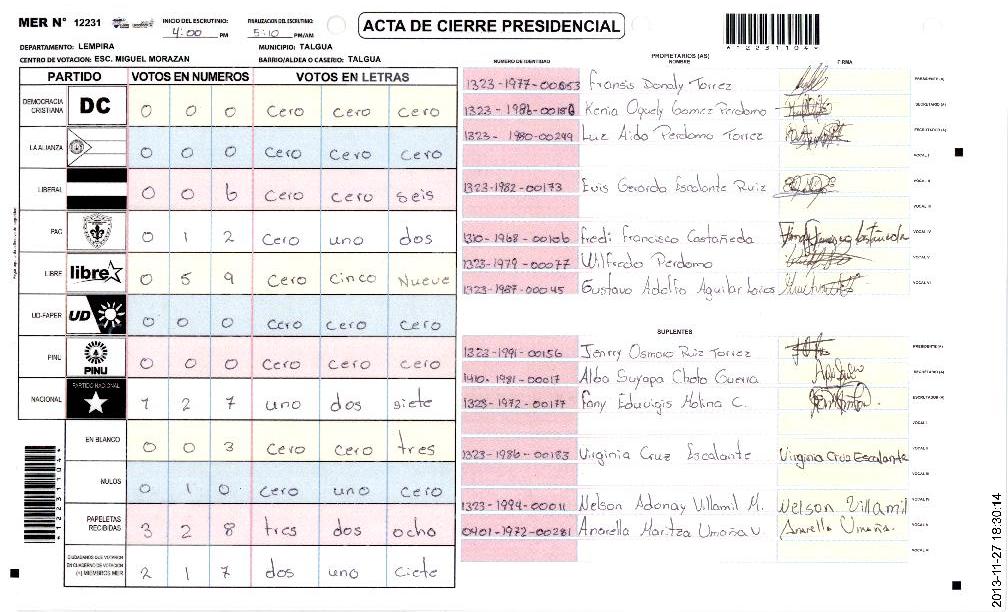 MER N° 12231
INICIO DEL ESCRUTINIO: 4:00 PM
FINALIZACION DEL ESCRUTINIO: 5:10 PM/AM
ACTA DE CIERRE PRESIDENCIAL
DEPARTAMENTO: LEMPIRA
MUNICIPIO: TALGUA
CENTRO DE VOTACION: ESC. MIGUEL MORAZAN
BARRIO/ALDEA O CASERIO: TALGUA
PARTIDO VOTOS EN NUMEROS VOTOS EN LETRAS
DEMOCRACIA CRISTIANA DC 0 0 0 Cero Cero Cero
LA ALIANZA 0 0 0 Cero Cero Cero
LIBERAL 0 0 6 Cero Cero seis
PAC 0 1 2 Cero uno dos
LIBRE libre 0 5 9 Cero Cinco Nueve
UD-FAPER UD 0 0 0 Cero Cero Cero
PINU PINU 0 0 0 Cero Cero Cero
NACIONAL PARTIDO NACIONAL 1 2 7 uno dos siete
EN BLANCO 0 0 3 Cero Cero tres
NULOS 0 1 0 Cero uno Cero
PAPELETAS RECIBIDAS 3 2 8 tres dos ocho
CIUDADANOS QUE VOTARON EN CUADERNO DE VOTACION (+) MIEMBROS MER 2 1 7 dos uno Ciete
NUMERO DE IDENTIDAD PROPIETARIOS (AS) NOMBRE FIRMA
1323-1977-00053 Fransis Donaly Torrez PRESIDENTE (A)
1323-1986- Kenia Oquely Gomez Perdomo SECRETARIO (A)
1323-1980-00299 Luz Aida Perdomo Torrez ESCRUTADOR (A)
VOCAL I
1323-1982-00173 Euis Gerardo Escalante Ruiz VOCAL II
VOCAL III
1310-1968-00106 Fredi Francisco Castañeda VOCAL IV
1323-1979-00077 Wilfredo Perdomo VOCAL V
1323-1987-00045 Gustavo Adolfo Aguilar VOCAL VI
SUPLENTES
1323-1991-00156 Jenrry Osmaro Ruiz Torrez PRESIDENTE (A)
1410-1981-00017 Alba Suyapa Choto Guerra SECRETARIO (A)
1323-1972-00177 Fany Eduvigis Molina C. ESCRUTADOR (A)
VOCAL I
1323-1986-00183 Virginia Cruz Escalante Virginia Cruz Escalante VOCAL II
VOCAL III
1323-1994-00011 Nelson Adonay Villamil M. Nelson Villamil VOCAL IV
0401-1972-00281 Anarella Maritza Umaña V. Anarella Umaña. VOCAL V
VOCAL VI
2013-11-27 18:30:14